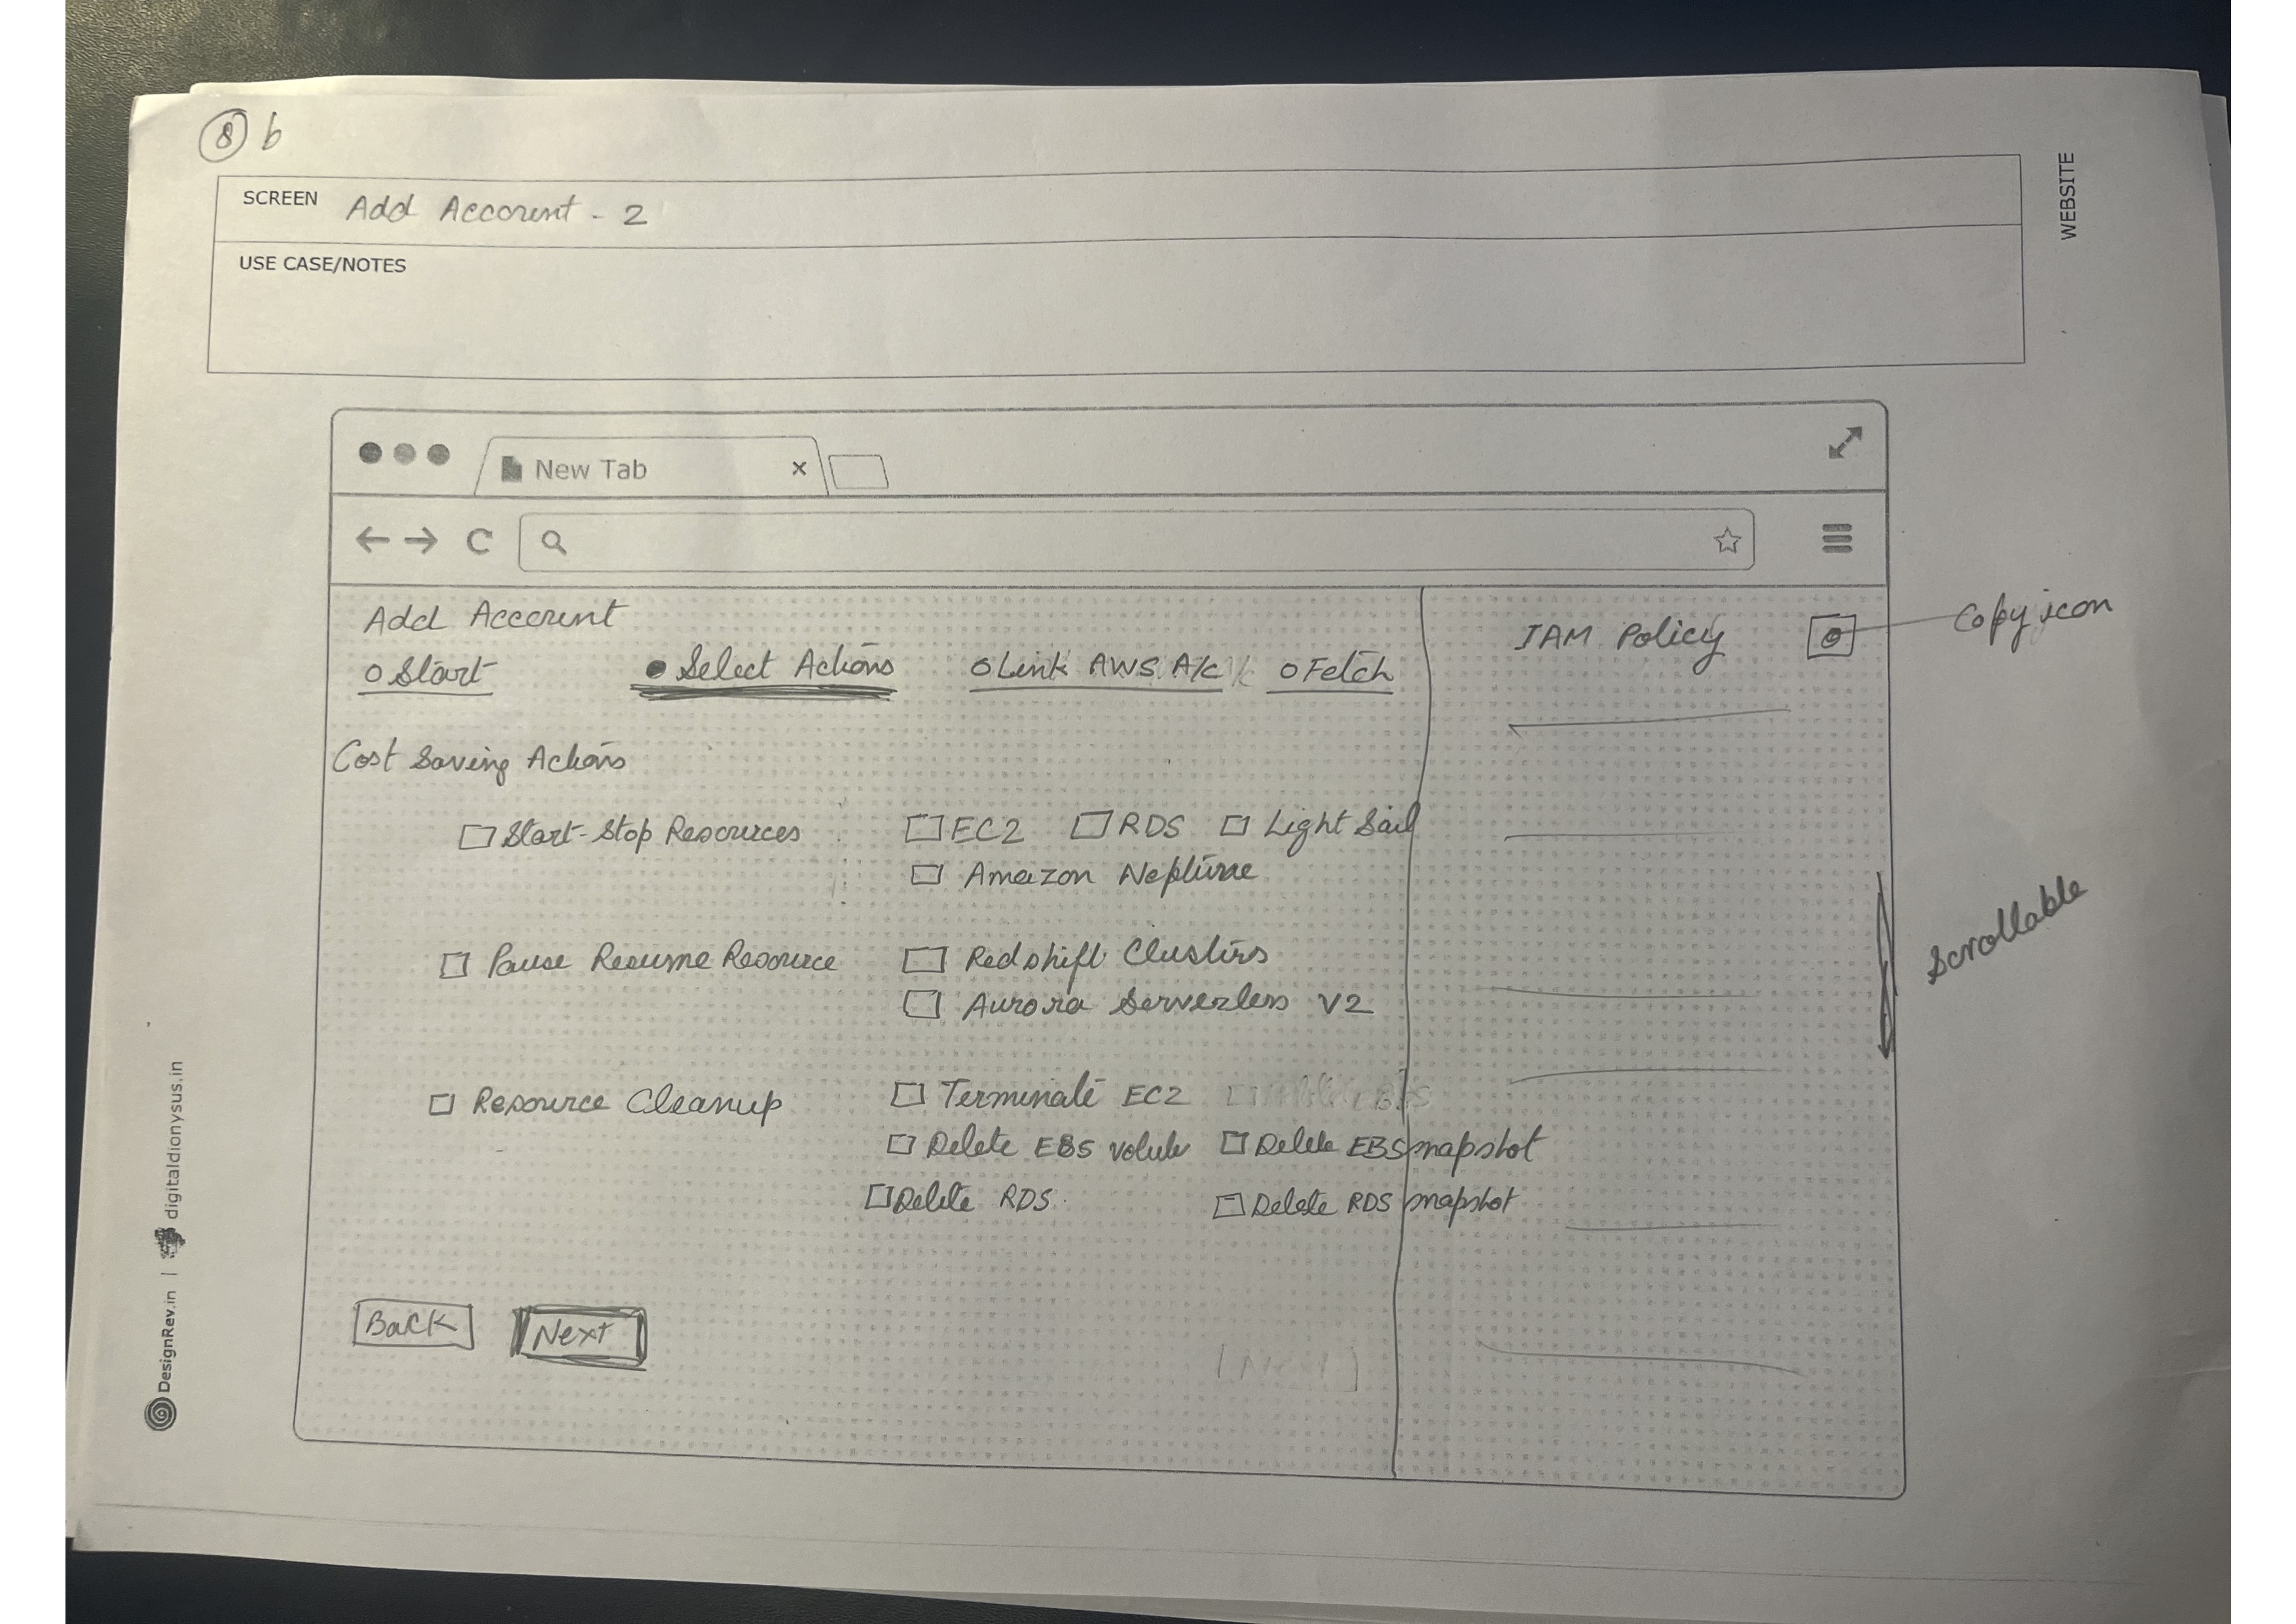 8 b
SCREEN Add Account - 2
WEBSITE
USE CASE/NOTES
New Tab
Add Account
IAM Policy
Copy icon
Start Select Actions Link AWS A/c Fetch
Cost Saving Actions
Start-Stop Resources EC2 RDS Light Sail
Amazon Neptune
Pause Resume Resource Redshift Clusters
Aurora Serverless V2
Scrollable
Resource Cleanup Terminate EC2
Delete EBS Delete EBS snapshot
Delete RDS Delete RDS snapshot
Back Next
[Next]
DesignRev.in | digitaldionysus.in